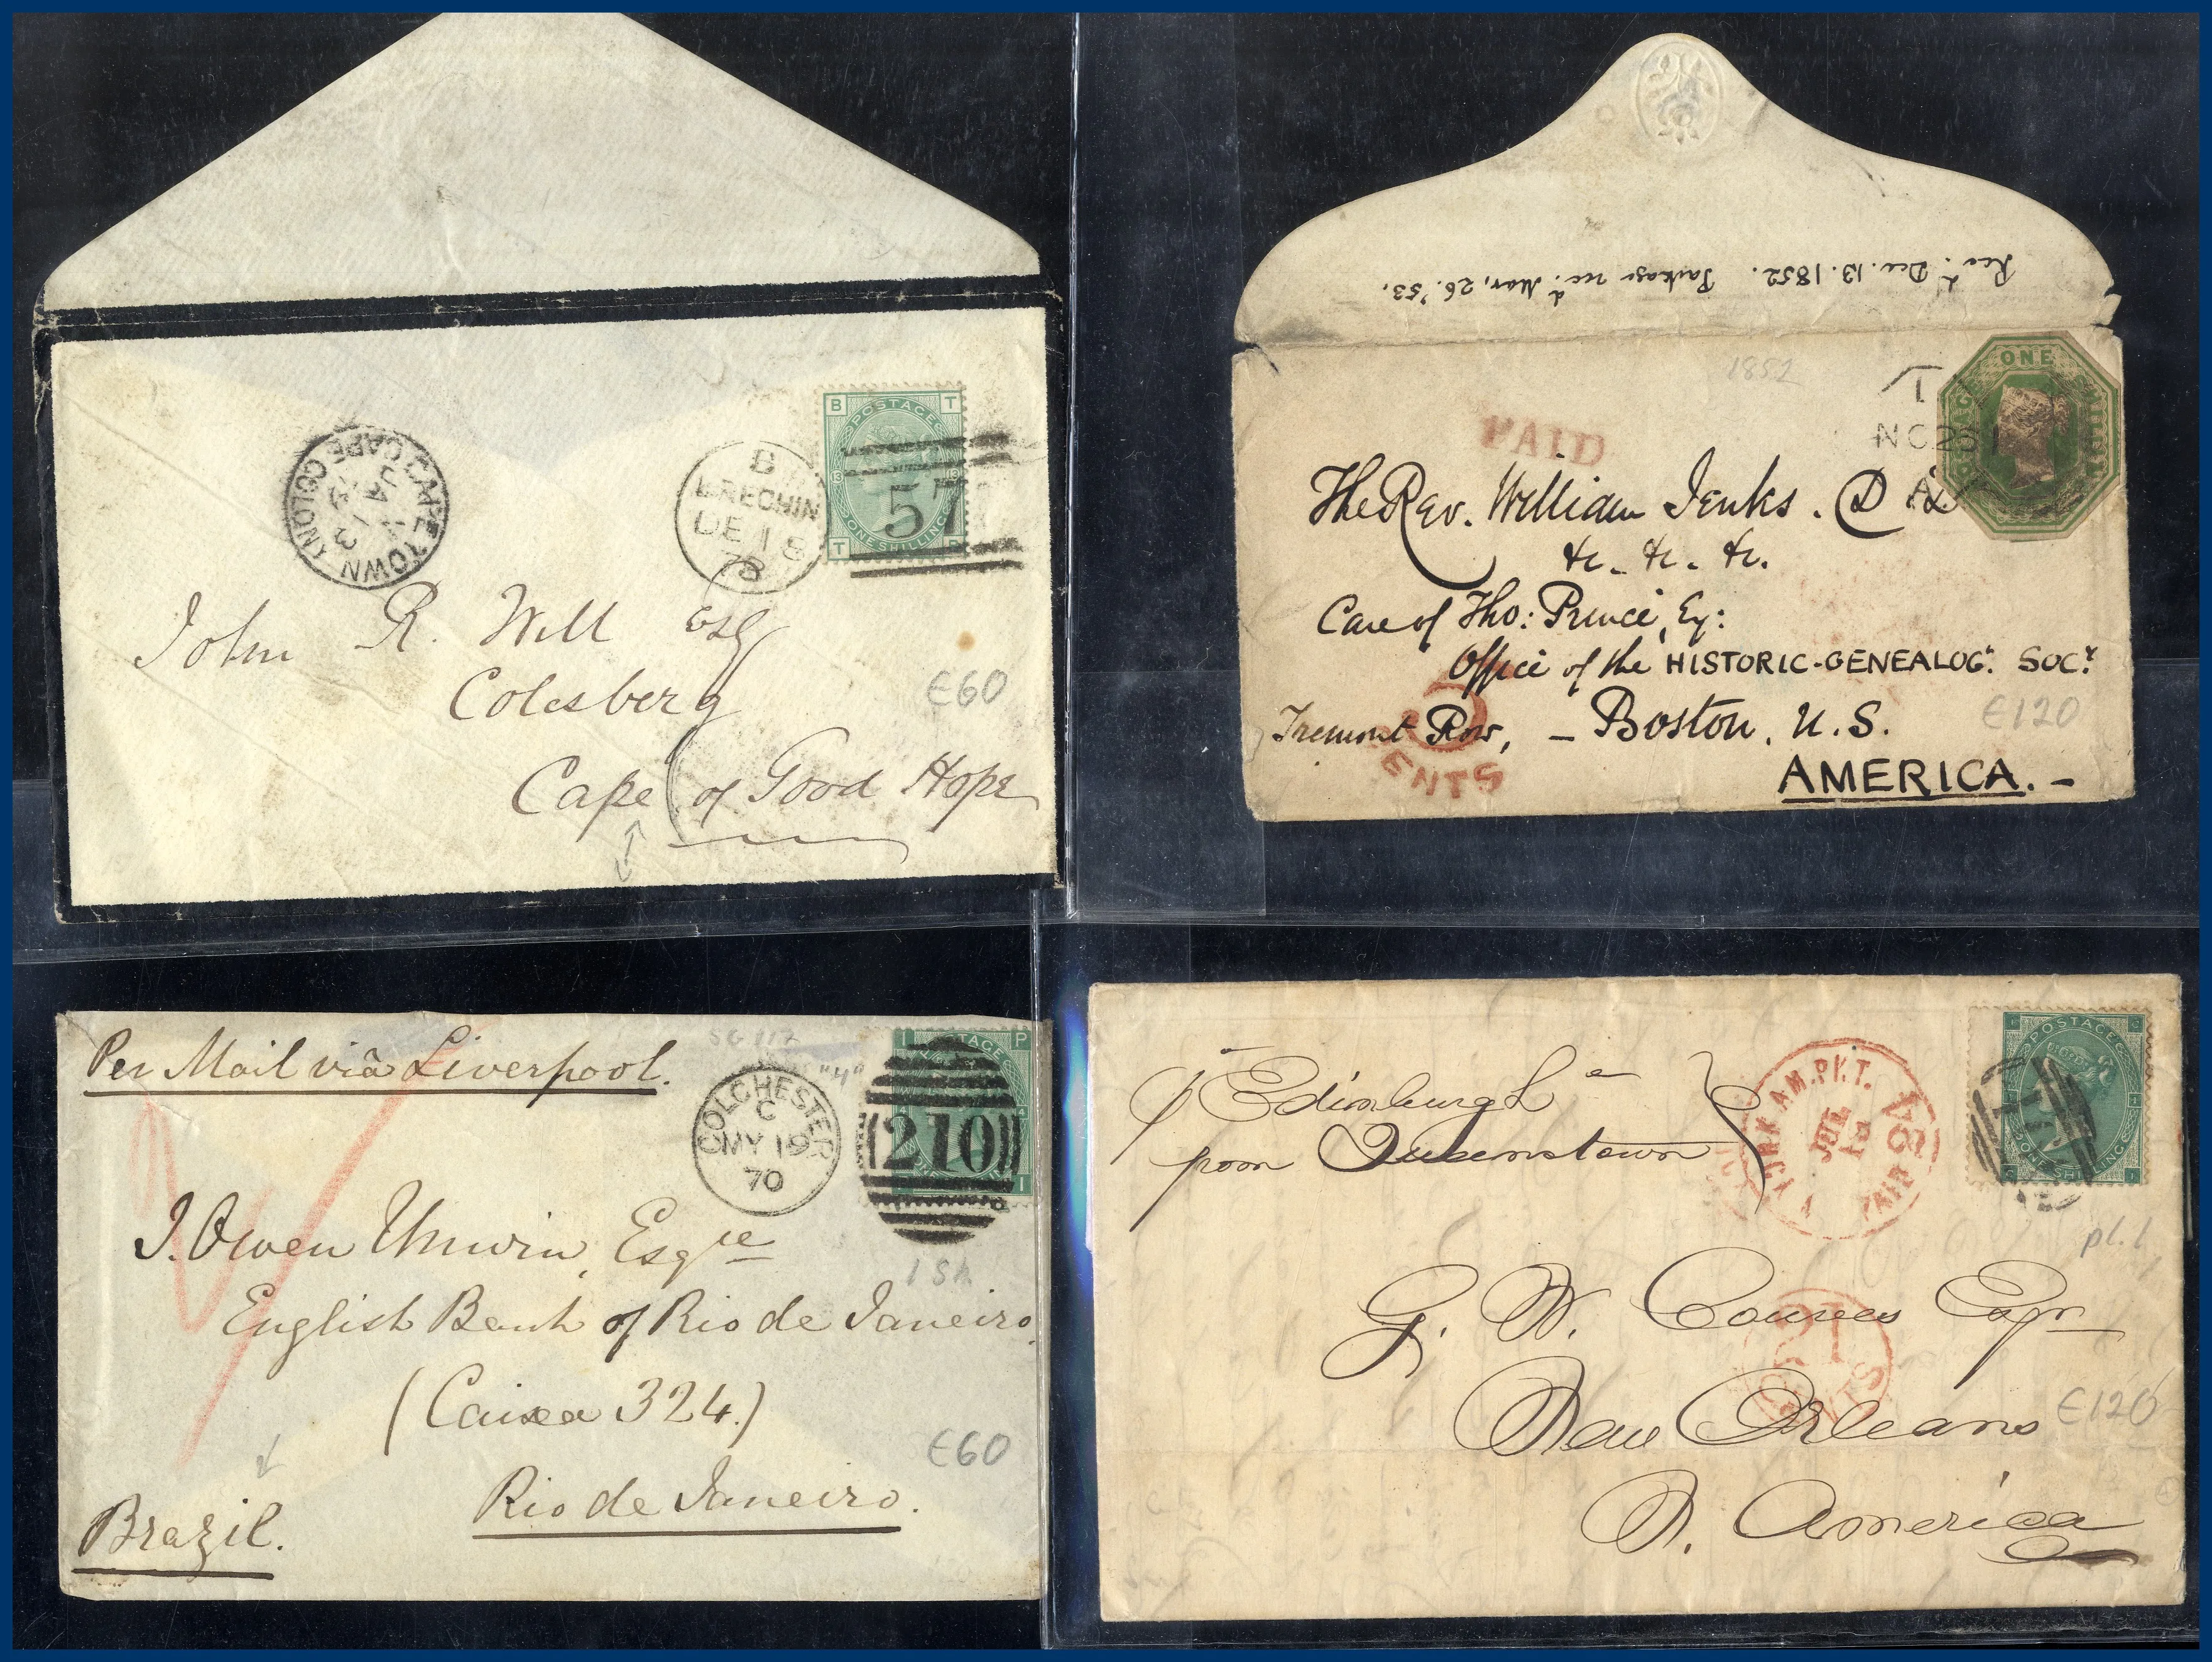 CAPE TOWN
CAPE COLONY
JA
13
79
B
BRECHIN
DE 18
78
B T
POSTAGE
57
ONE SHILLING
T B
John R. Will Esq
Colesberg
Cape of Good Hope
£60
Recd. Dec. 13. 1852. Package recd. Mar, 26. '53.
1852
ONE
PAID
The Rev. William Jenks. D
&c. &c. &c.
Care of Tho: Prince, Esq:
Office of the HISTORIC-GENEALOG. SOCy.
£120
Tremont Row, - Boston, U.S.
CENTS
AMERICA. -
Per Mail viâ Liverpool.
SG 117
"4"
COLCHESTER
C
MY 19
70
P
210
1 Sh
J. Owen Unwin, Esqre
English Bank of Rio de Janeiro
(Caixa 324.)
£60
Rio de Janeiro.
Brazil.
p Edinburgh
from Queenstown
YORK AM. PKT.
JUL
PAID
POSTAGE
ONE SHILLING
pl. 1
G. W. Esqr
CENTS
New Orleans
£120
N. America